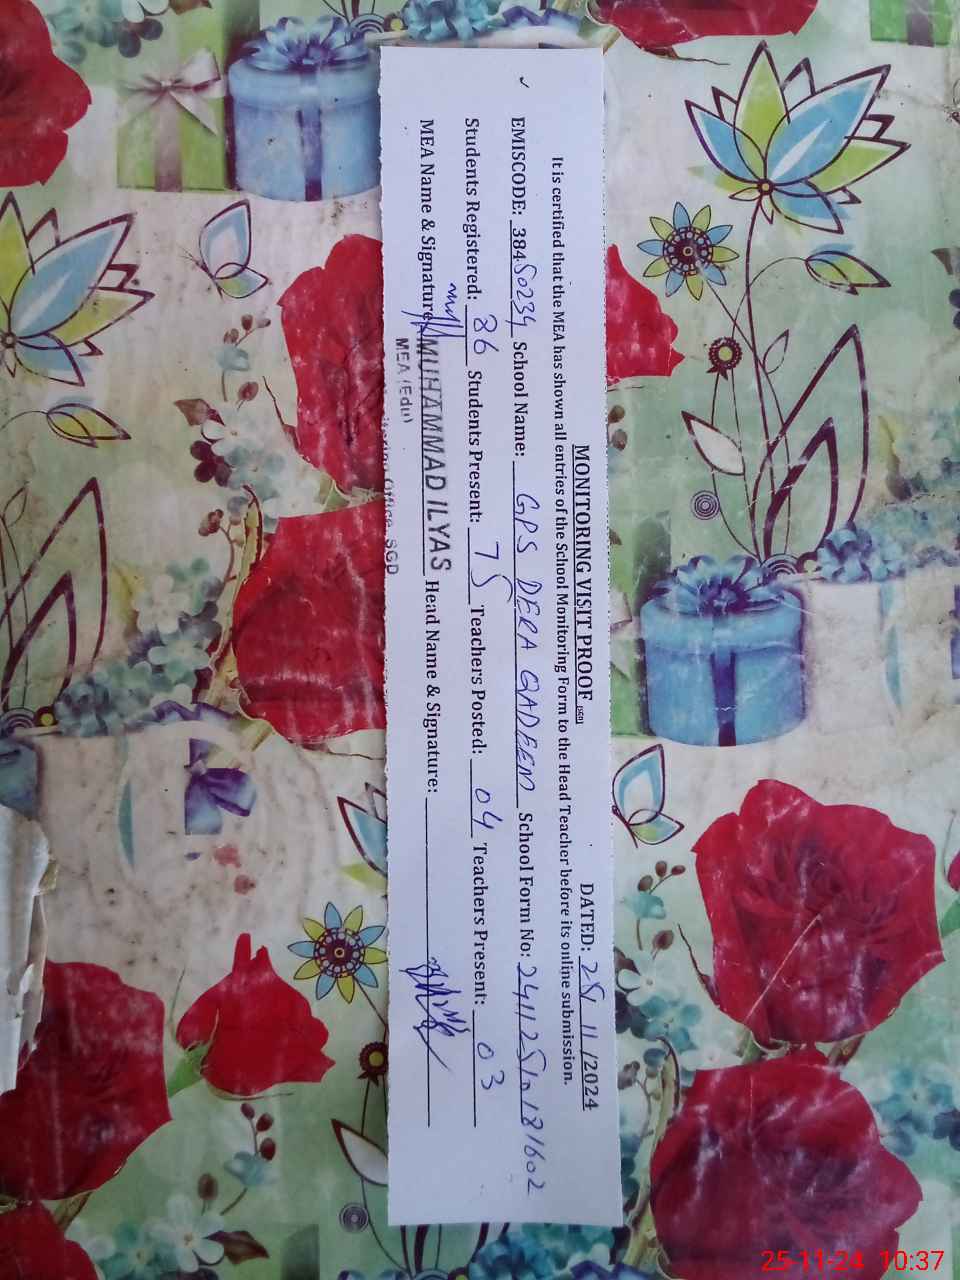 MONITORING VISIT PROOF DATED: 25/11/2024
It is certified that the MEA has shown all entries of the School Monitoring Form to the Head Teacher before its online submission.
EMISCODE: 38450234 School Name: GPS DERA QADEEM School Form No: 24112510181602
Students Registered: 86 Students Present: 75 Teachers Posted: 04 Teachers Present: 03
MEA Name & Signature MUHAMMAD ILYAS Head Name & Signature:
MEA (Edu)
Office SGD
25-11-24 10:37